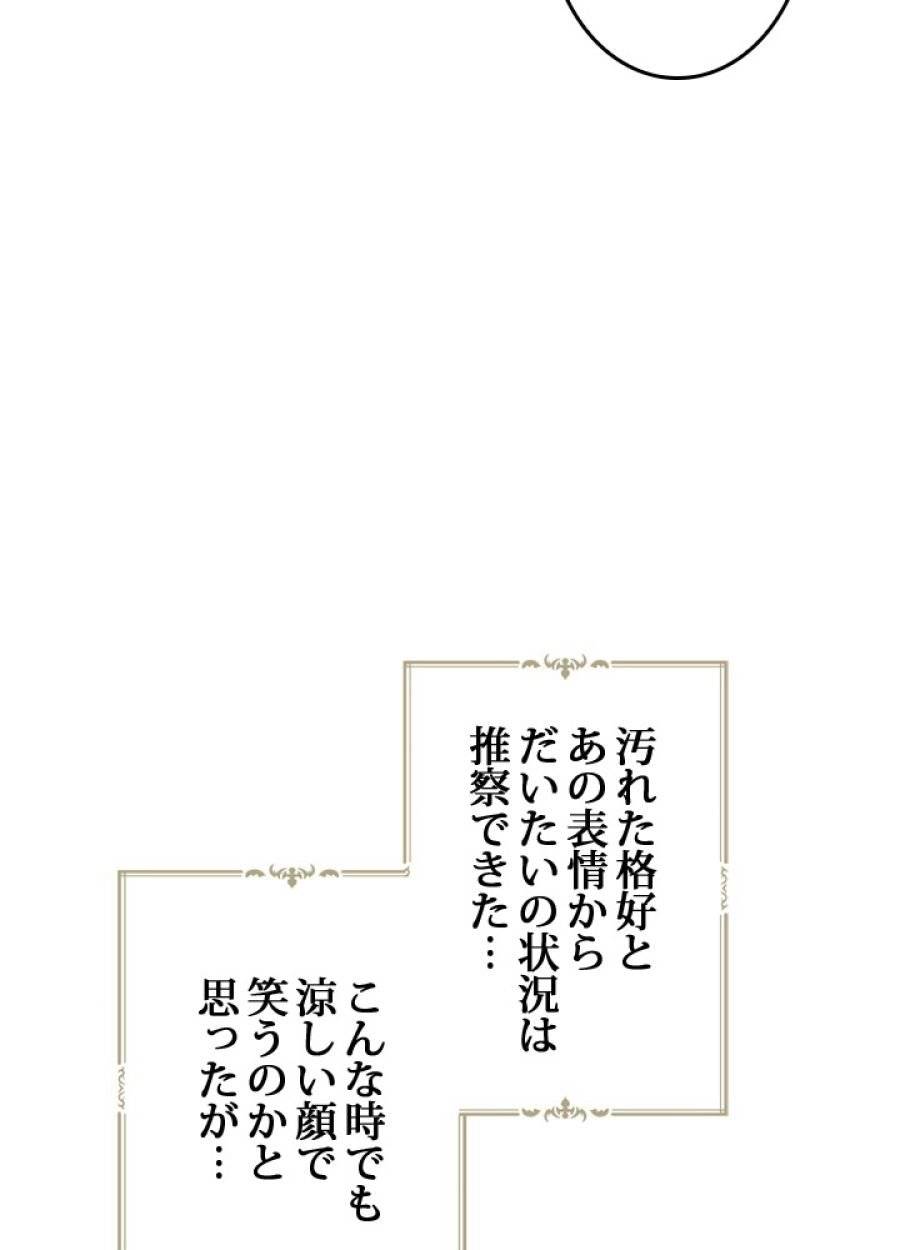 汚れた格好と
あの表情から
だいたいの状況は
推察できた…
こんな時でも
涼しい顔で
笑うのかと
思ったが…